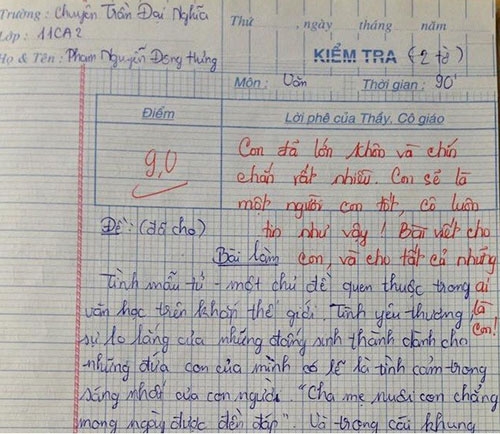 Trường : Chuyên Trần Đại Nghĩa
Lớp : 11CA2
Họ & Tên : Phạm Nguyễn Đông Hưng
Thứ ngày tháng năm
KIỂM TRA (2 tờ)
Môn : Văn Thời gian : 90'
Điểm
Lời phê của Thầy, Cô giáo
9,0
Con đã lớn khôn và chín
chắn rất nhiều. Con sẽ là
một người con tốt, cô luôn
tin như vậy ! Bài viết cho
con, và cho tất cả những
ai
là
con!
Đề : (đã cho)
Bài làm
Tình mẫu tử - một chủ đề quen thuộc trong
văn học trên khắp thế giới. Tình yêu thương,
sự lo lắng của những đấng sinh thành dành cho
những đứa con của mình có lẽ là tình cảm trong
sáng nhất của con người. "Cha mẹ nuôi con chẳng
mong ngày được đền đáp". Và trong cái khung